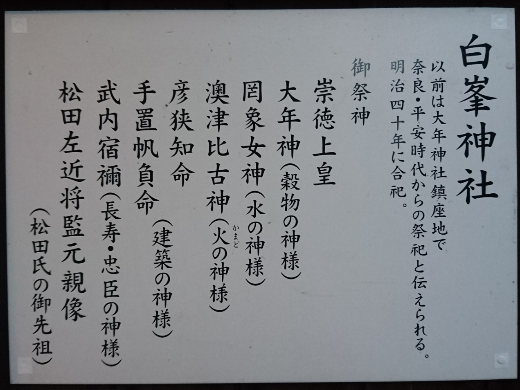 白峯神社
以前は大年神社鎮座地で
奈良・平安時代からの祭祀と伝えられる。
明治四十年に合祀。
御祭神
崇徳上皇
大年神(穀物の神様)
罔象女神(水の神様)
澳津比古神(火の神様)
かまど
彦狭知命
手置帆負命(建築の神様)
武内宿禰(長寿・忠臣の神様)
松田左近将監元親像
(松田氏の御先祖)